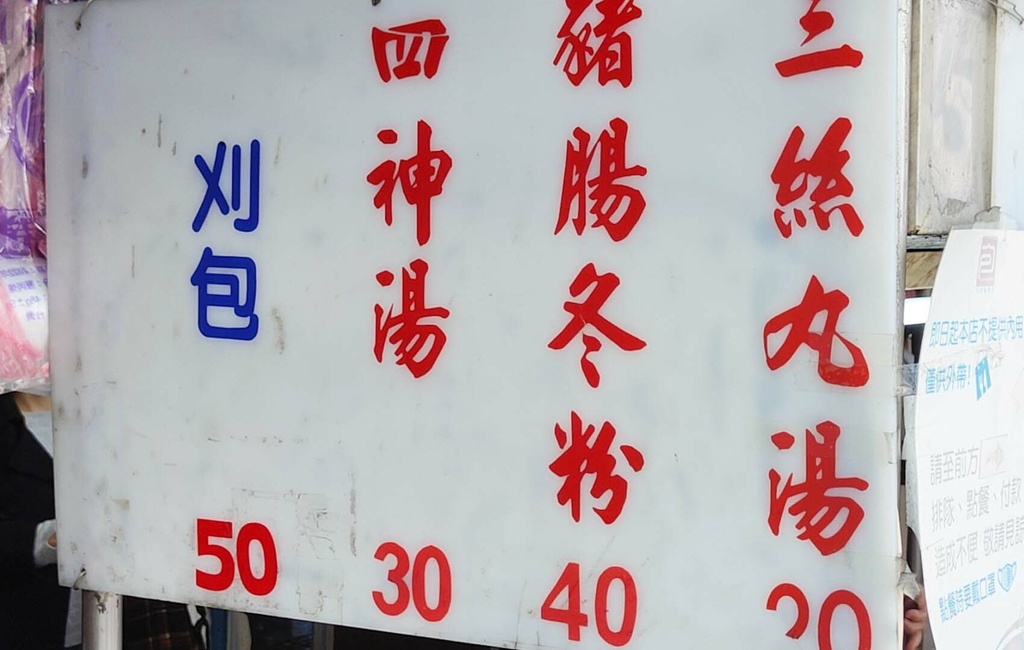 三絲丸湯 20
豬腸冬粉 40
四神湯 30
刈包 50
即日起本店不提供內用
僅供外帶!
請至前方
排隊、點餐、付款
造成不便 敬請見諒
點餐時要戴口罩